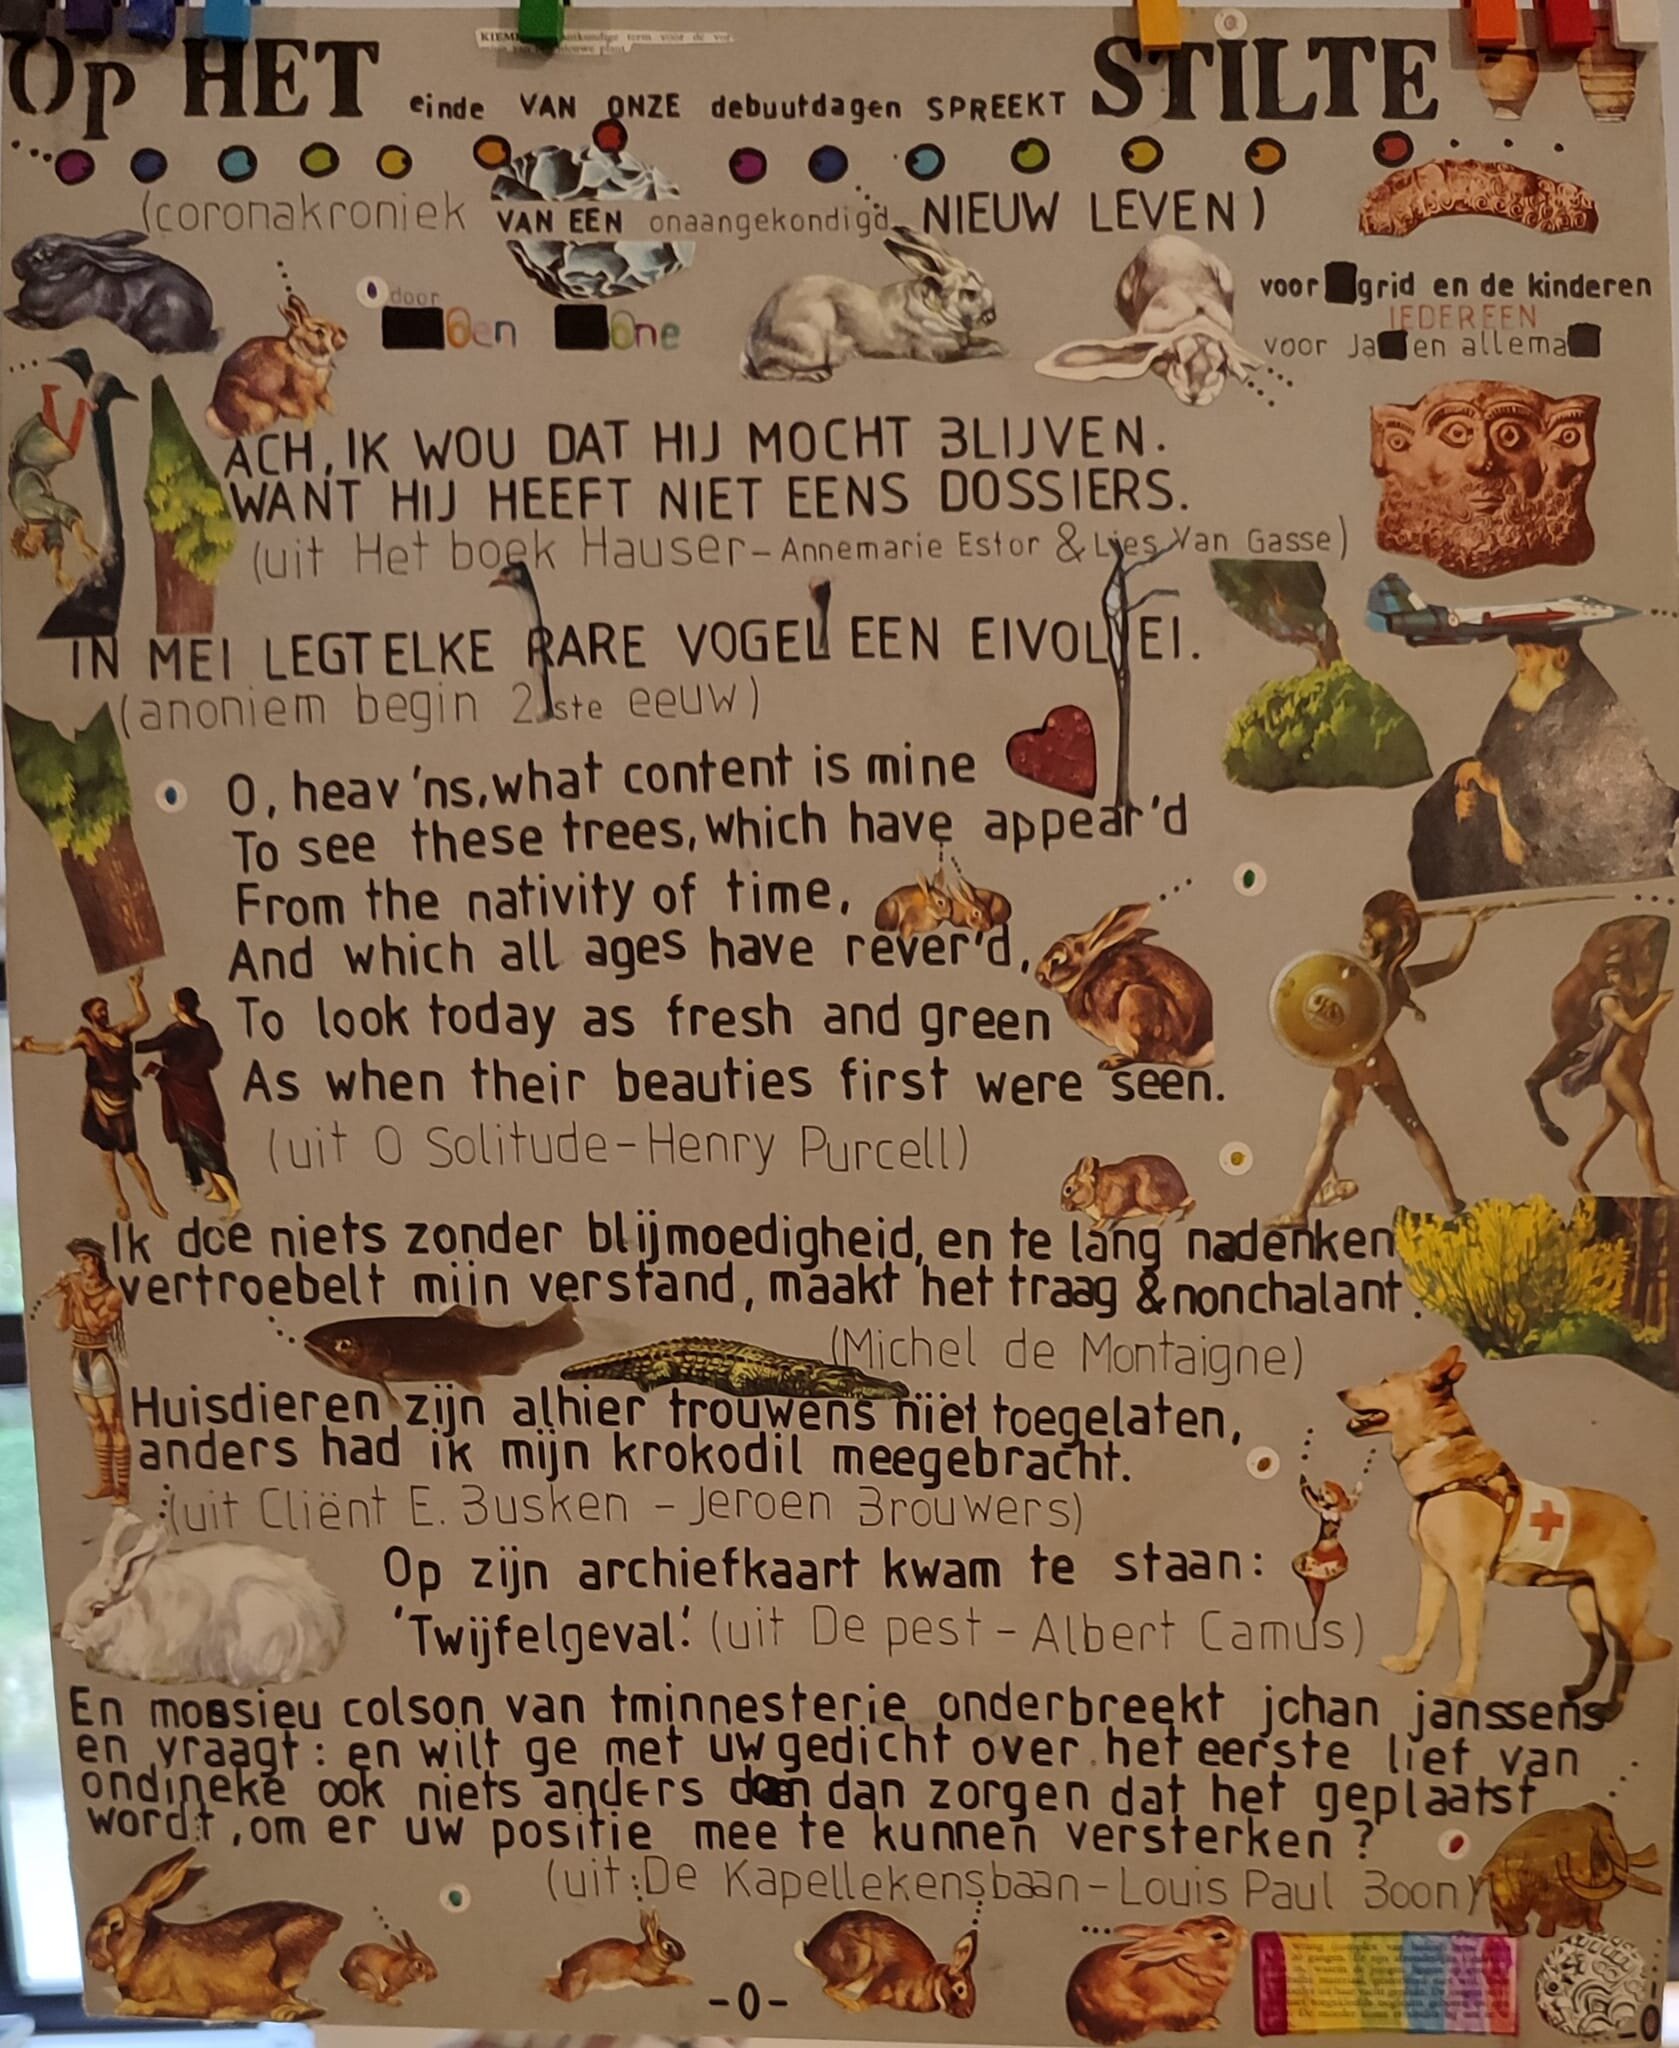 KIEM
Op HET einde VAN ONZE debuutdagen SPREEKT STILTE
(coronakroniek VAN EEN onaangekondigd NIEUW LEVEN)
door
voor grid en de kinderen
IEDEREEN
voor Ja en allema
ACH, IK WOU DAT HIJ MOCHT BLIJVEN.
WANT HIJ HEEFT NIET EENS DOSSIERS.
(uit Het boek Hauser - Annemarie Estor & Lies Van Gasse)
IN MEI LEGT ELKE RARE VOGEL EEN EIVOL EI.
(anoniem begin 21ste eeuw)
O, heav'ns, what content is mine
To see these trees, which have appear'd
From the nativity of time,
And which all ages have rever'd,
To look today as fresh and green
As when their beauties first were seen.
(uit O Solitude - Henry Purcell)
Ik doe niets zonder blijmoedigheid, en te lang nadenken
vertroebelt mijn verstand, maakt het traag & nonchalant.
(Michel de Montaigne)
Huisdieren zijn alhier trouwens niet toegelaten,
anders had ik mijn krokodil meegebracht.
(uit Cliënt E. Busken - Jeroen Brouwers)
Op zijn archiefkaart kwam te staan:
'Twijfelgeval.' (uit De pest - Albert Camus)
En mossieu colson van tminnesterie onderbreekt jchan janssens
en vraagt: en wilt ge met uw gedicht over het eerste lief van
ondineke ook niets anders doen dan zorgen dat het geplaatst
wordt, om er uw positie mee te kunnen versterken?
(uit: De Kapellekensbaan - Louis Paul Boon)
-0-
-0